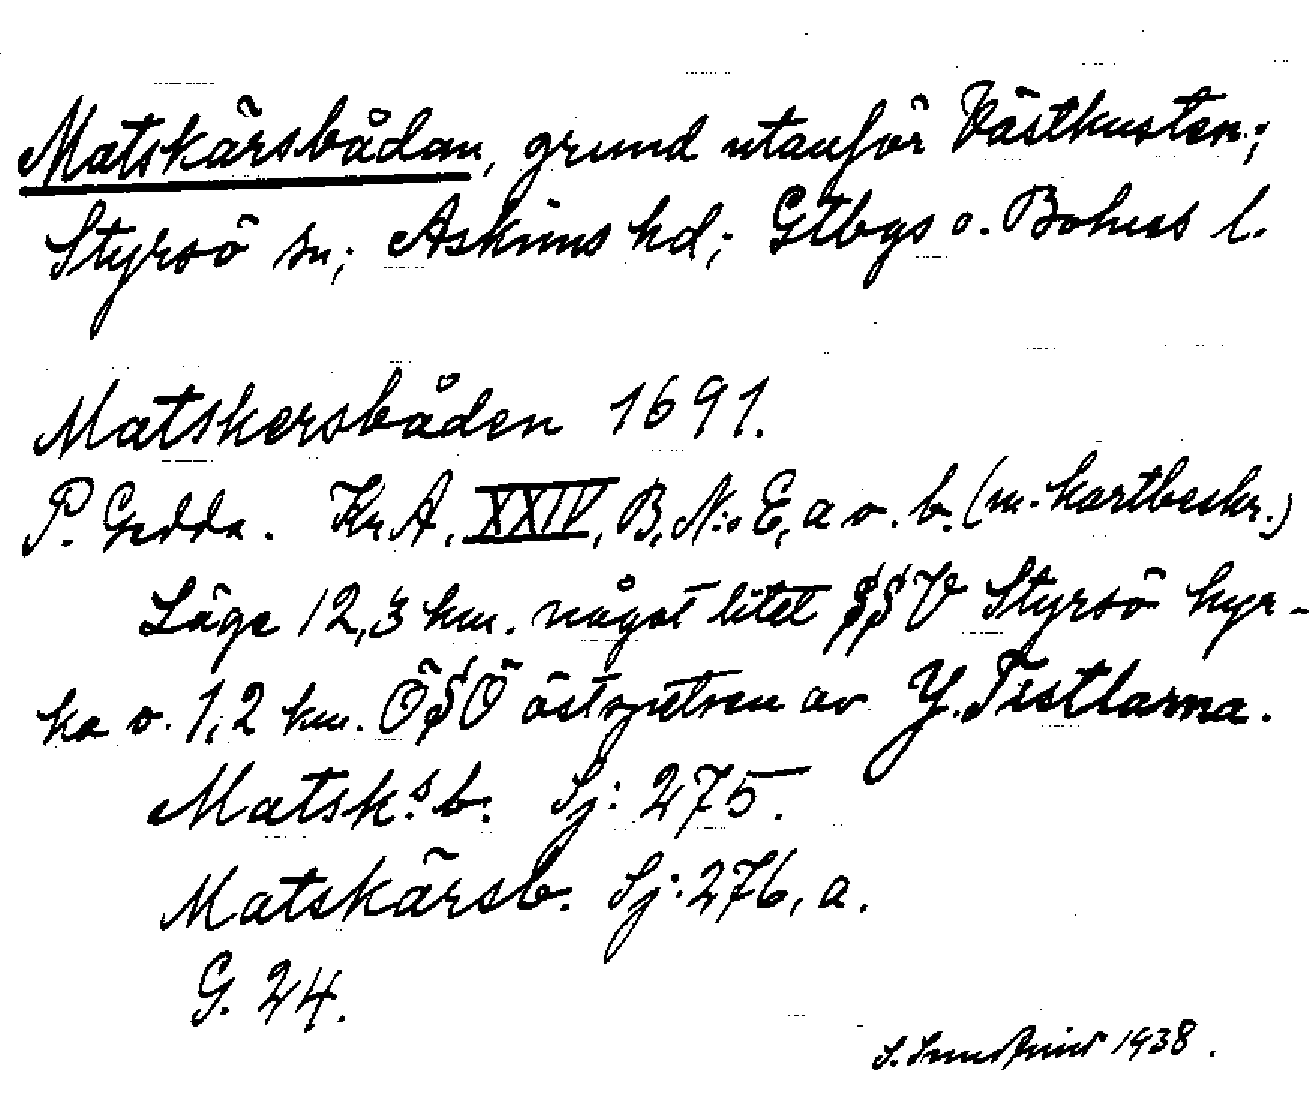 Matskärsbådan, grund utanför Västkusten;
Styrsö sn; Askims hd; Gtbgs o. Bohus l.
Matskersbåden 1691.
P. Gedda. Kr. A. XXIV, B, N:o E, a o. b. (m. kartbeskr.)
Läge 12,3 km. något litet S§V Styrsö kyr-
ka o. 1,2 km. Ö§Ö östspetsen av Y. Tistlarna.
Matsk:s b. Sj: 275.
Matskärsb. Sj: 276, a.
G. 24.
1938.